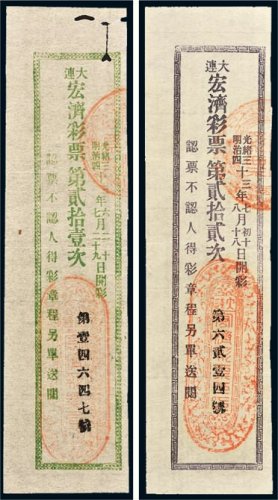 大連
宏濟彩票第貳拾壹次
光緒三十
明治四
年六月二十
七月二十九日開彩
認票不認人得彩章程另單送閱
第壹四六四七號
大連
宏濟彩票第貳拾貳次
光緒三十三年七月初十
明治四十年八月十八日開彩
認票不認人得彩章程另單送閱
第六貳壹四號